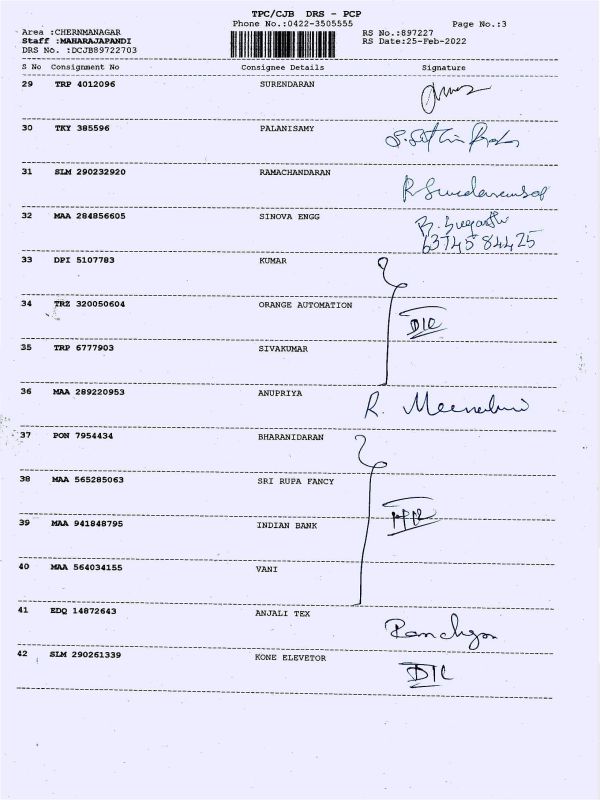 TPC/CJB DRS - PCP
Phone No.:0422-3505555 Page No.:3
Area :CHERNMANAGAR RS No.:897227
Staff :MAHARAJAPANDI RS Date:25-Feb-2022
DRS No. :DCJB89722703
S No Consignment No Consignee Details Signature
29 TRP 4012096 SURENDARAN
30 TKY 385596 PALANISAMY
31 SLM 290232920 RAMACHANDARAN
32 MAA 284856605 SINOVA ENGG
6374584425
33 DPI 5107783 KUMAR
34 TRZ 320050604 ORANGE AUTOMATION
35 TRP 6777903 SIVAKUMAR
36 MAA 289220953 ANUPRIYA
37 PON 7954434 BHARANIDARAN
38 MAA 565285063 SRI RUPA FANCY
39 MAA 941848795 INDIAN BANK
40 MAA 564034155 VANI
41 EDQ 14872643 ANJALI TEX
42 SLM 290261339 KONE ELEVETOR